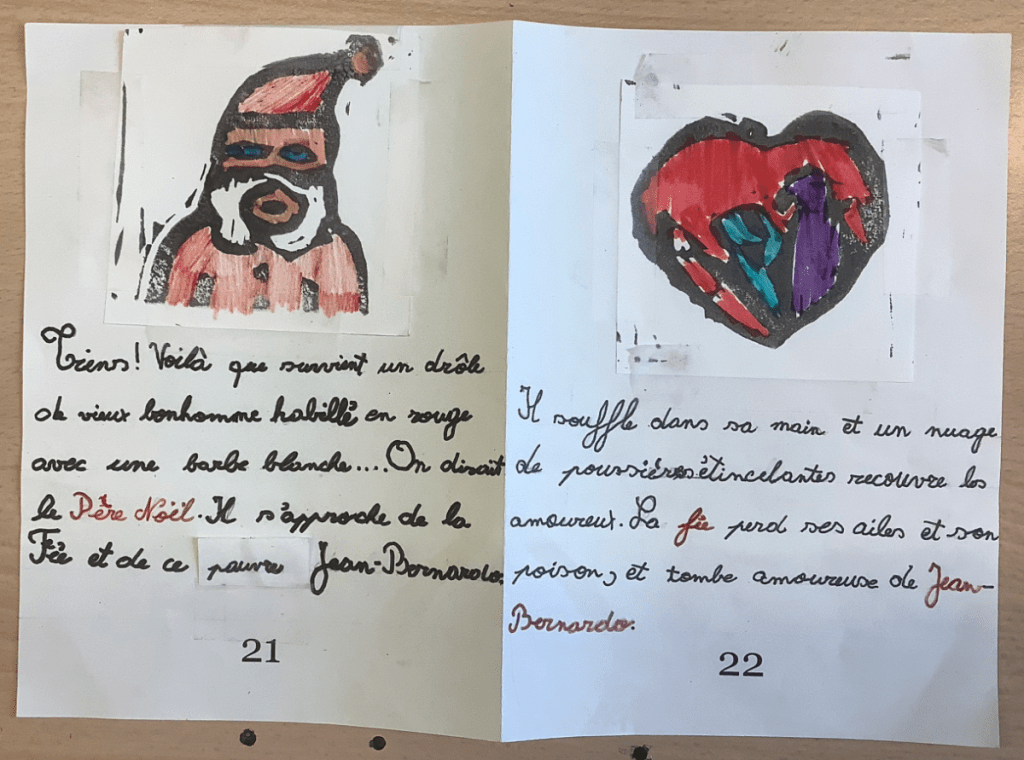 Tiens! Voilà que survient un drôle
de vieux bonhomme habillé en rouge
avec une barbe blanche....On dirait
le Père Noël. Il s'approche de la
Fée et de ce pauvre Jean-Bernardo.
21
Il souffle dans sa main et un nuage
de poussières étincelantes recouvre les
amoureux. La fée perd ses ailes et son
poison, et tombe amoureuse de Jean-
Bernardo.
22